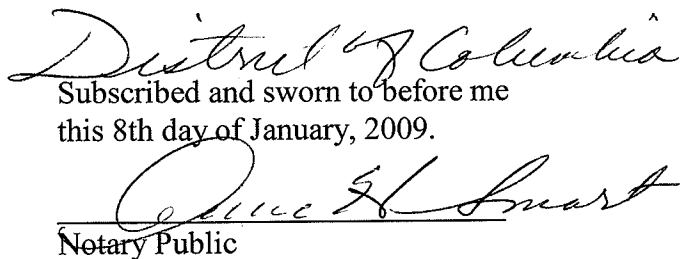 District of Columbia
Subscribed and sworn to before me
this 8th day of January, 2009.
Anne H Smart
Notary Public